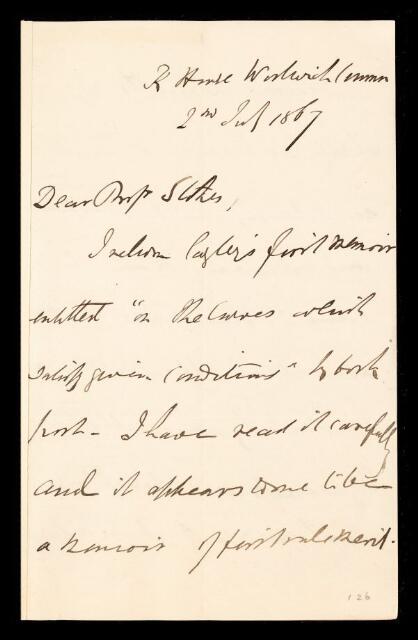 K House Woolwich Common
2nd July 1867
Dear Profr Stokes,
I return Cayley's first memoir
entitled "on the Curves which
satisfy given Conditions" by book
post - I have read it carefully
and it appears to me to be
a memoir of first rate merit.
126